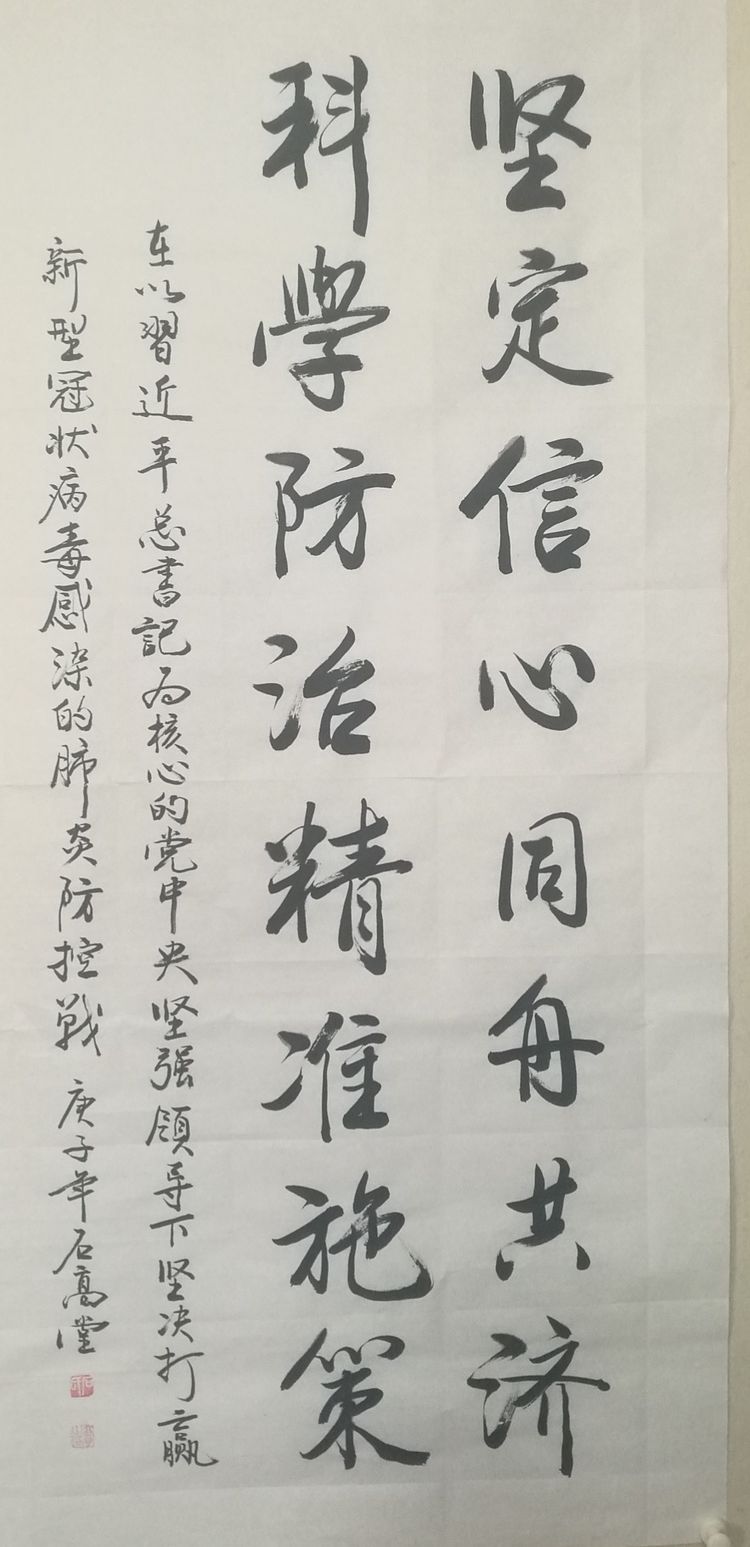 坚定信心同舟共济
科學防治精准施策
在以習近平总書記为核心的党中央坚强領导下坚决打赢
新型冠状病毒感染的肺炎防控戰 庚子年石高堂